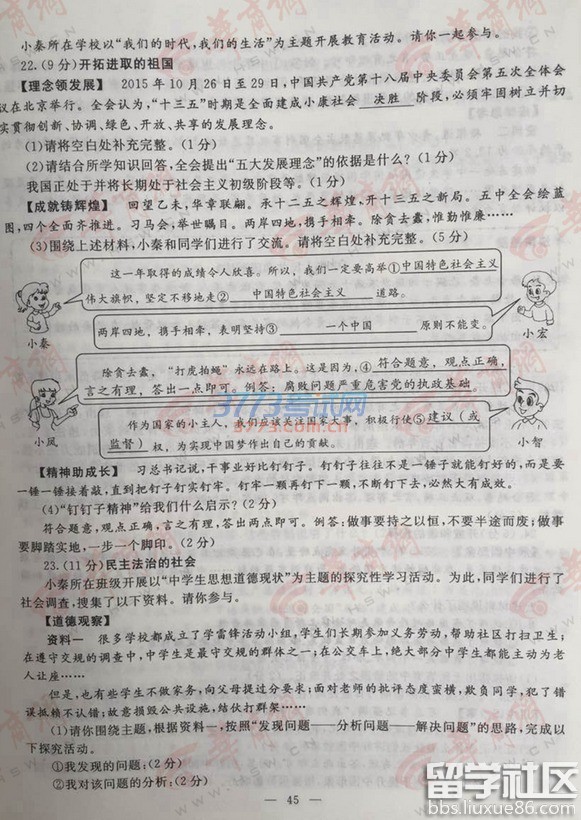 小秦所在学校以“我们的时代,我们的生活”为主题开展教育活动。请你一起参与。
22.(9分)开拓进取的祖国
【理念领发展】 2015年10月26日至29日,中国共产党第十八届中央委员会第五次全体会
议在北京举行。全会认为,“十三五”时期是全面建成小康社会 决胜 阶段,必须牢固树立并切
实贯彻创新、协调、绿色、开放、共享的发展理念。
(1)请将空白处补充完整。(1分)
(2)请结合所学知识回答,全会提出“五大发展理念”的依据是什么?(1分)
我国正处于并将长期处于社会主义初级阶段等。(1分)
【成就铸辉煌】 回望乙未,华章联翩。承十二五之辉煌,开十三五之新局。五中全会绘蓝
图,四个全面齐推进。习马会,举世瞩目。两岸四地,携手相牵。除贪去蠹,惟勤惟廉……
(3)围绕上述材料,小秦和同学们进行了交流。请将空白处补充完整。(5分)
这一年取得的成绩令人欣喜。所以,我们一定要高举①中国特色社会主义
伟大旗帜,坚定不移地走② 中国特色社会主义 道路。
小秦
两岸四地,携手相牵,表明坚持③ 一个中国 原则不能变。
小宏
除贪去蠹,“打虎拍蝇”永远在路上。这是因为,④ 符合题意,观点正确,
言之有理,答出一点即可。例答:腐败问题严重危害党的执政基础。
小凤
作为国家的小主人,我们应该关注国家大事,积极行使⑤ 建议(或
监督) 权,为实现中国梦作出自己的贡献。
小智
【精神助成长】 习总书记说,干事业好比钉钉子。钉钉子往往不是一锤子就能钉好的,而是要
一锤一锤接着敲,直到把钉子钉实钉牢。钉牢一颗再钉下一颗,不断钉下去,必然大有成效。
(4)“钉钉子精神”给我们什么启示?(2分)
符合题意,观点正确,言之有理,答出两点即可。例答:做事要持之以恒,不要半途而废;做事
要脚踏实地,一步一个脚印。(2分)
23.(11分)民主法治的社会
小秦所在班级开展以“中学生思想道德现状”为主题的探究性学习活动。为此,同学们进行了
社会调查,搜集了以下资料。请你参与。
【道德观察】
资料一 很多学校都成立了学雷锋活动小组,学生们长期参加义务劳动,帮助社区打扫卫生;
在遵守交规的调查中,中学生是最守交规的群体之一;在公交车上,绝大部分中学生都能主动为老
人让座……
但是,也有些学生不做家务,向父母提过分要求;面对老师的批评态度蛮横,欺负同学,犯了错
误抵赖不认错;故意损毁公共设施,结伙打群架……
(1)请你围绕主题,根据资料一,按照“发现问题——分析问题——解决问题”的思路,完成以
下探究活动。
①我发现的问题:(2分)
②我对该问题的分析:(2分)
— 45 —
3773考试网
3773.com.cn
华商网
留学社区
bbs.liuxue86.com